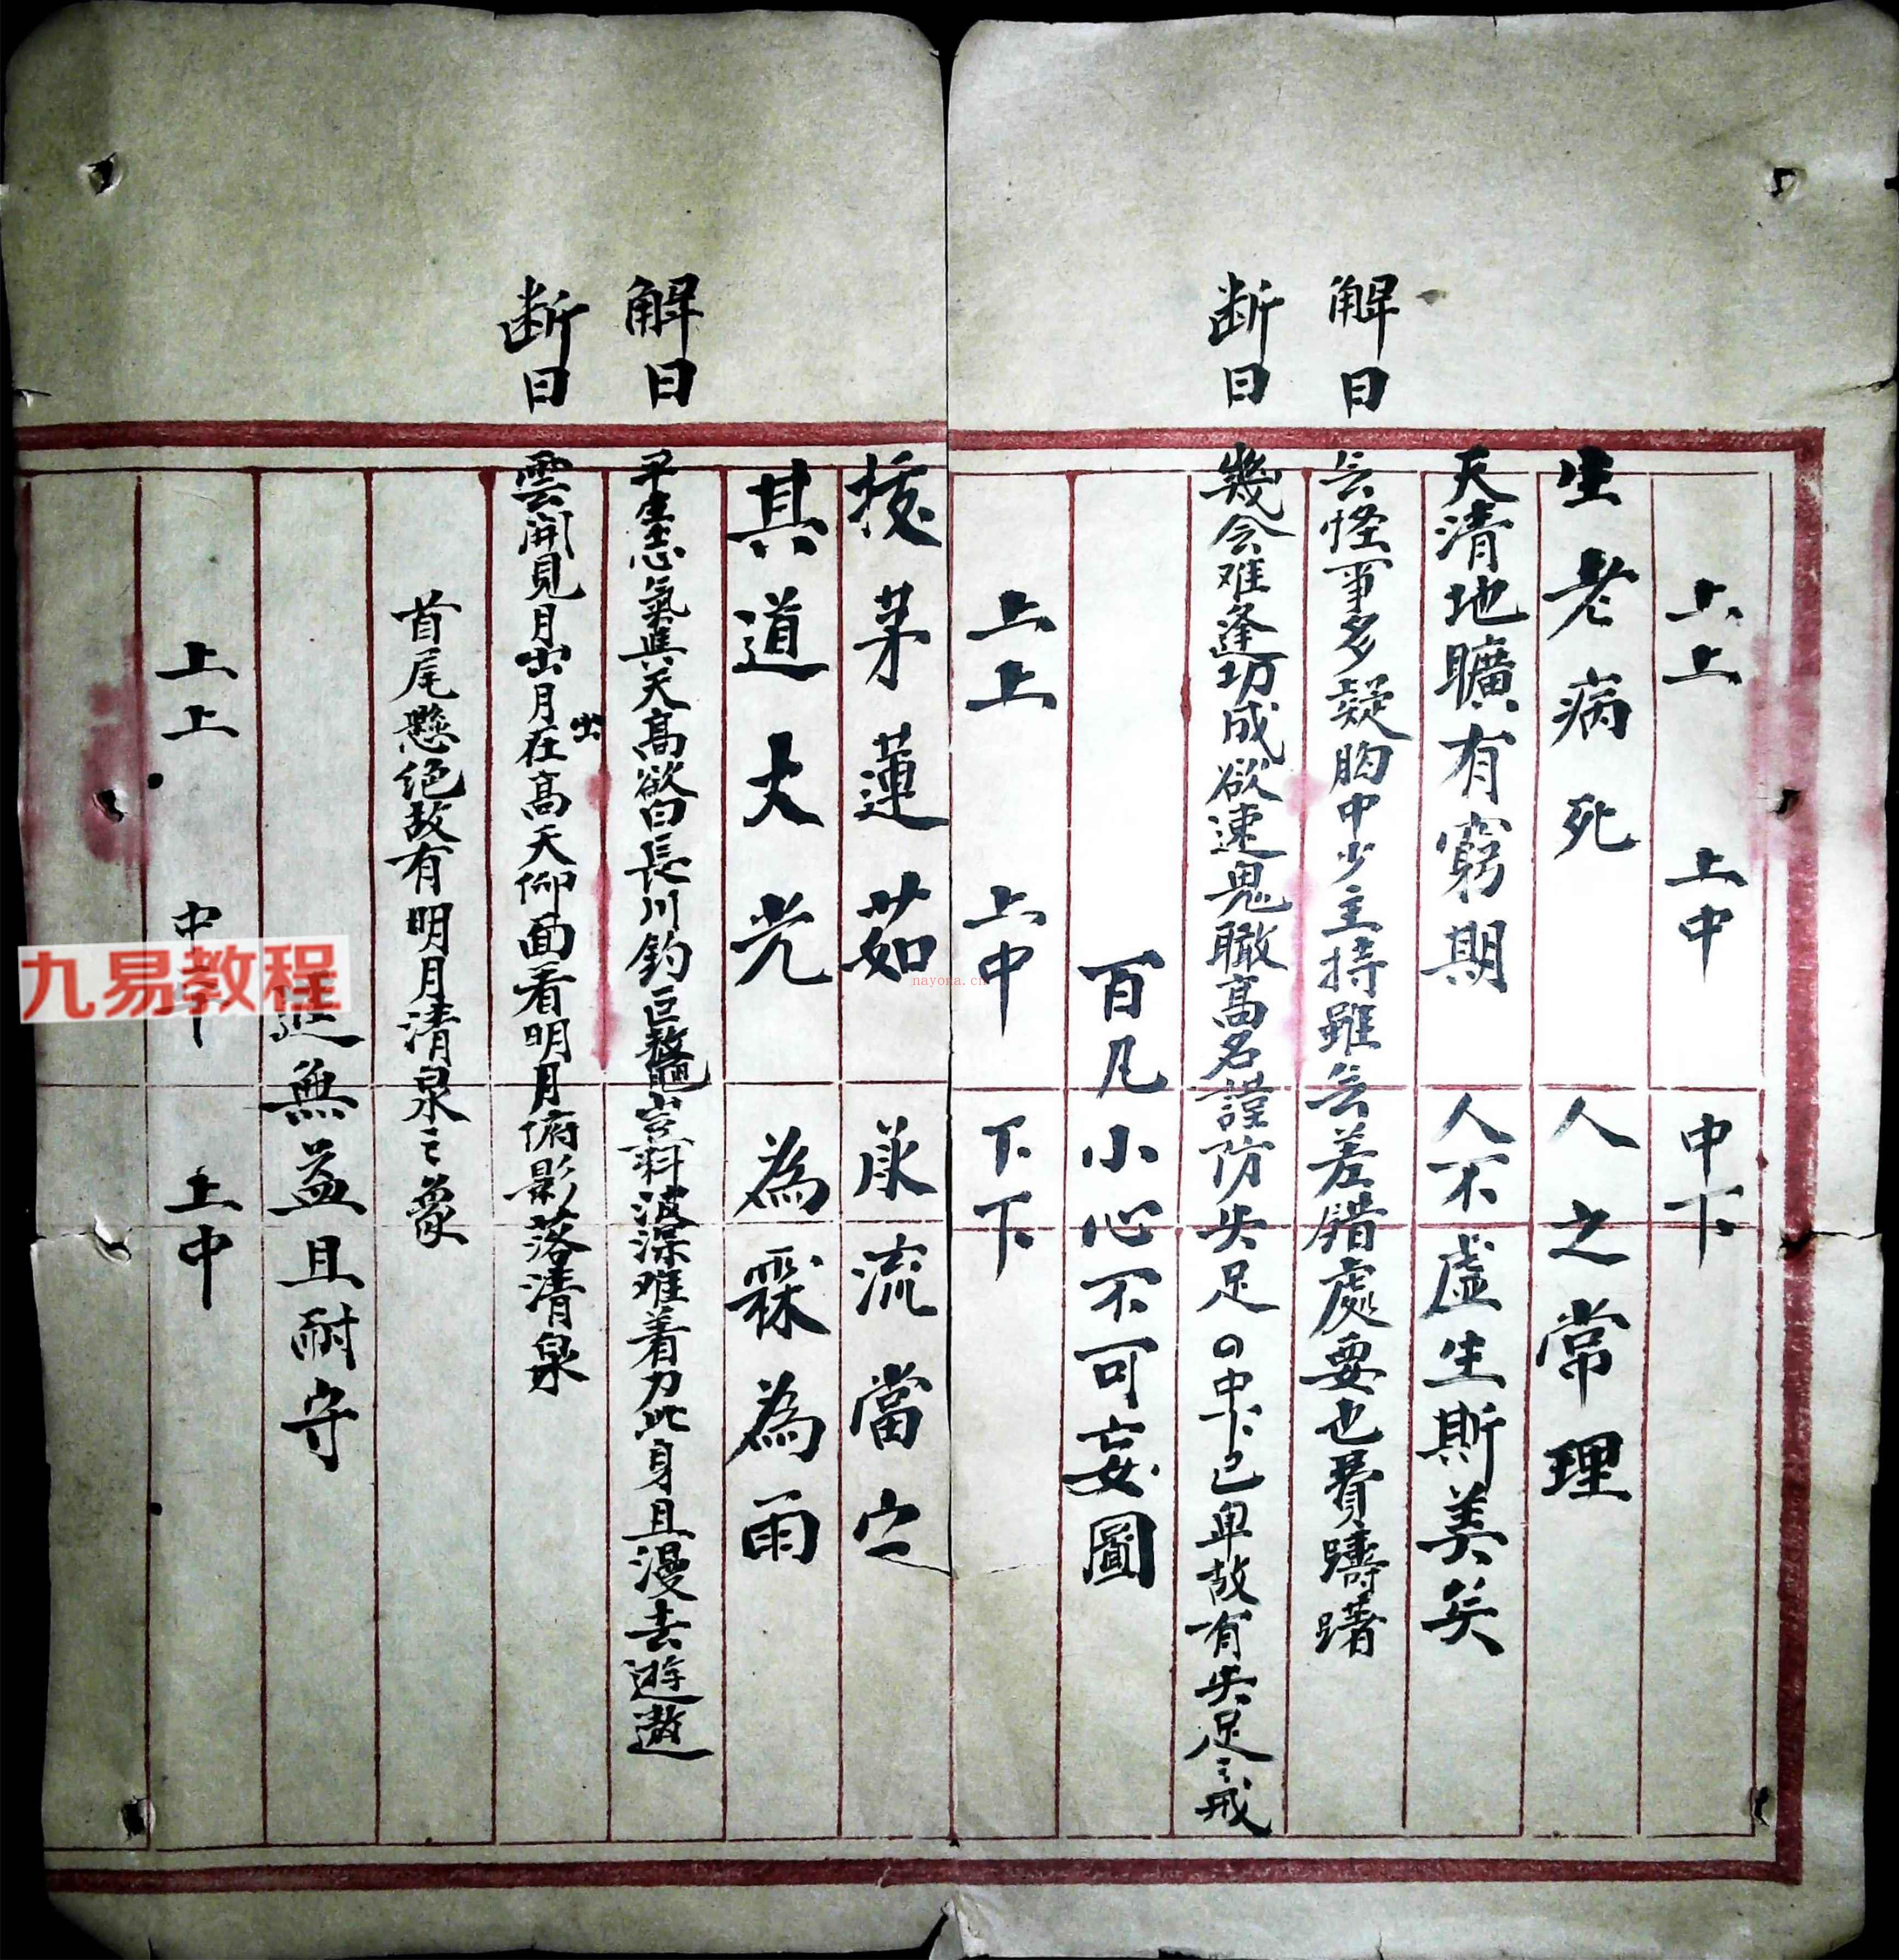 上上 上中 中下
生老病死 人之常理
天清地曠有窮期 人不虛生斯美矣
解曰
䒑怪事多疑胸中少主持雖䒑差錯處要也費躊躇
断曰
幾会难逢功成欲速鬼瞰高名謹防失足
中下已卑故有失足之戒
百凡小心不可妄圖
上上 上中 下下
拔茅蓮茹 承流當宀
其道大光 為霖為雨
解曰
平生志氣與天高欲向長川釣巨鼇豈料波深难着力此身且漫去遊遨
断曰
雲開見月出月在高天仰面看明月俯影落清泉
出
首尾懸绝故有明月清泉之象
無益且耐守
上上 中 上中
九易教程
nayona.cn